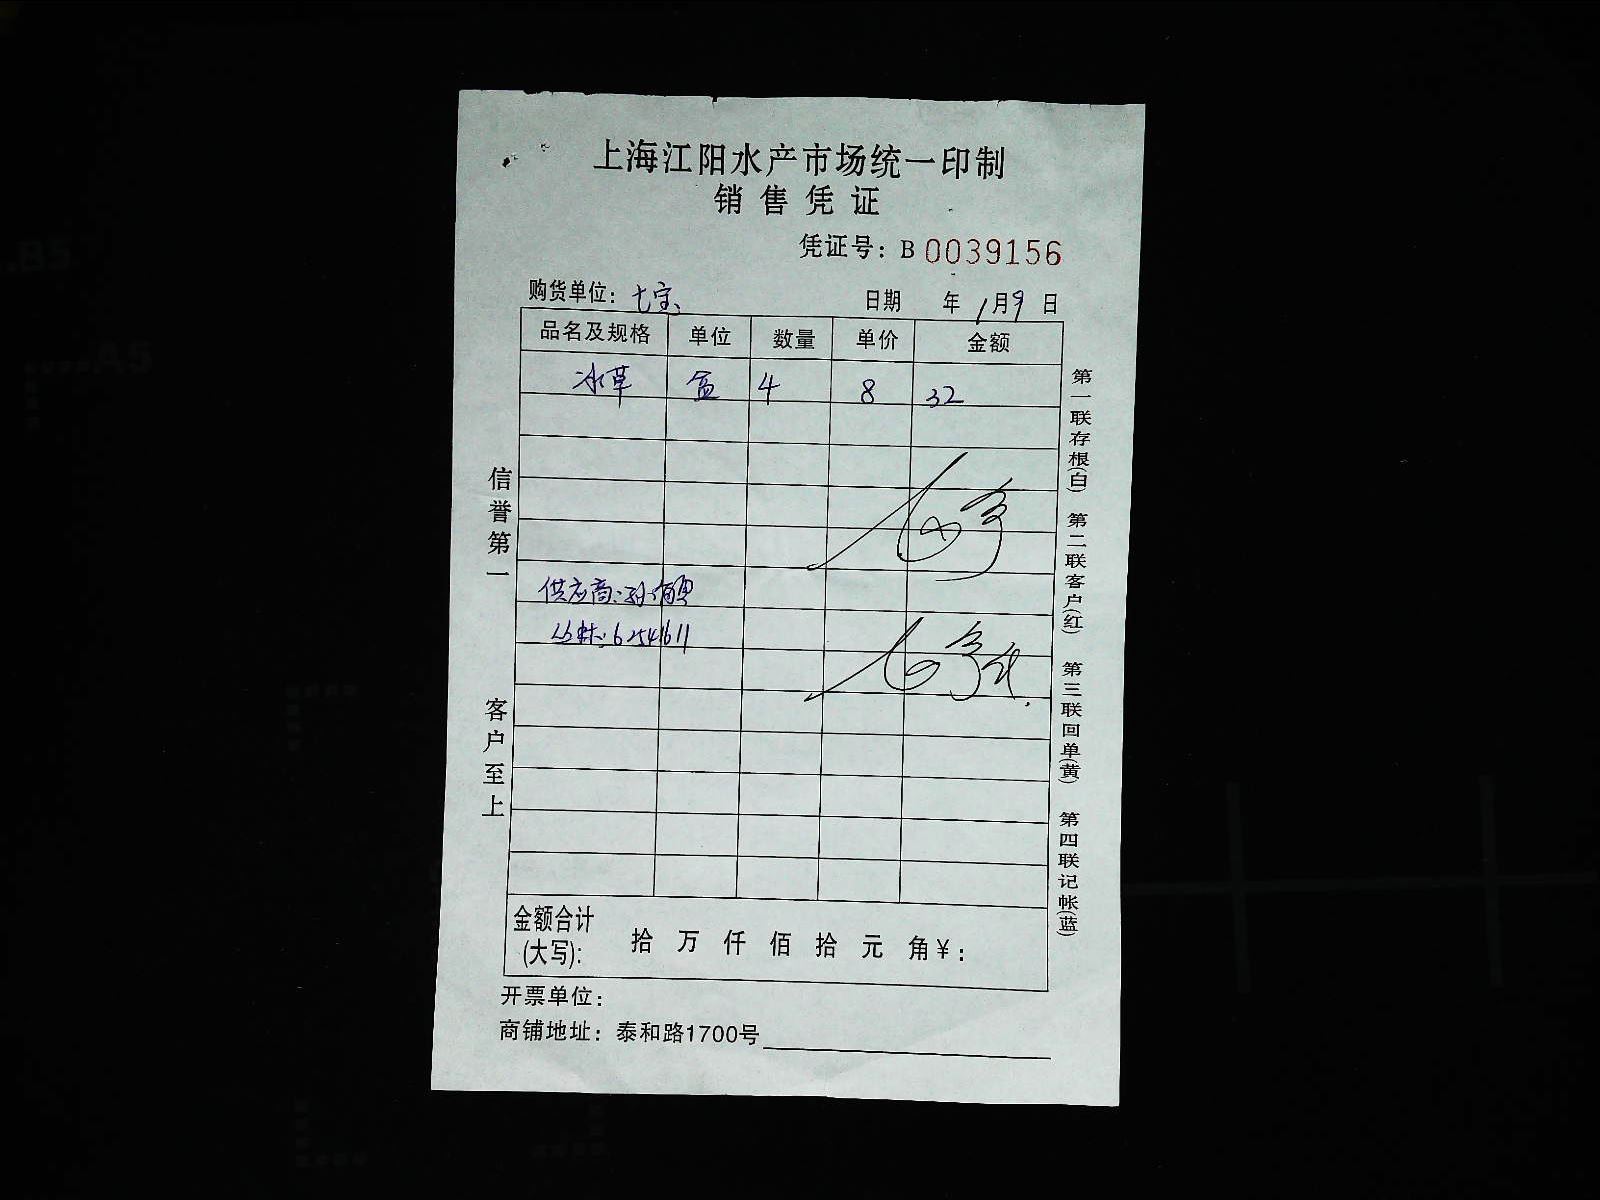 上海江阳水产市场统一印制
销售凭证
凭证号：B 0039156
购货单位：七宝
日期 年 1月9日
品名及规格 单位 数量 单价 金额
冰草 盒 4 8 32
供应商：孙
6254611
金额合计
(大写)： 拾 万 仟 佰 拾 元 角￥：
开票单位：
商铺地址：泰和路1700号
信誉第一
客户至上
第一联存根(白) 第二联客户(红) 第三联回单(黄) 第四联记帐(蓝)
.B5
A5